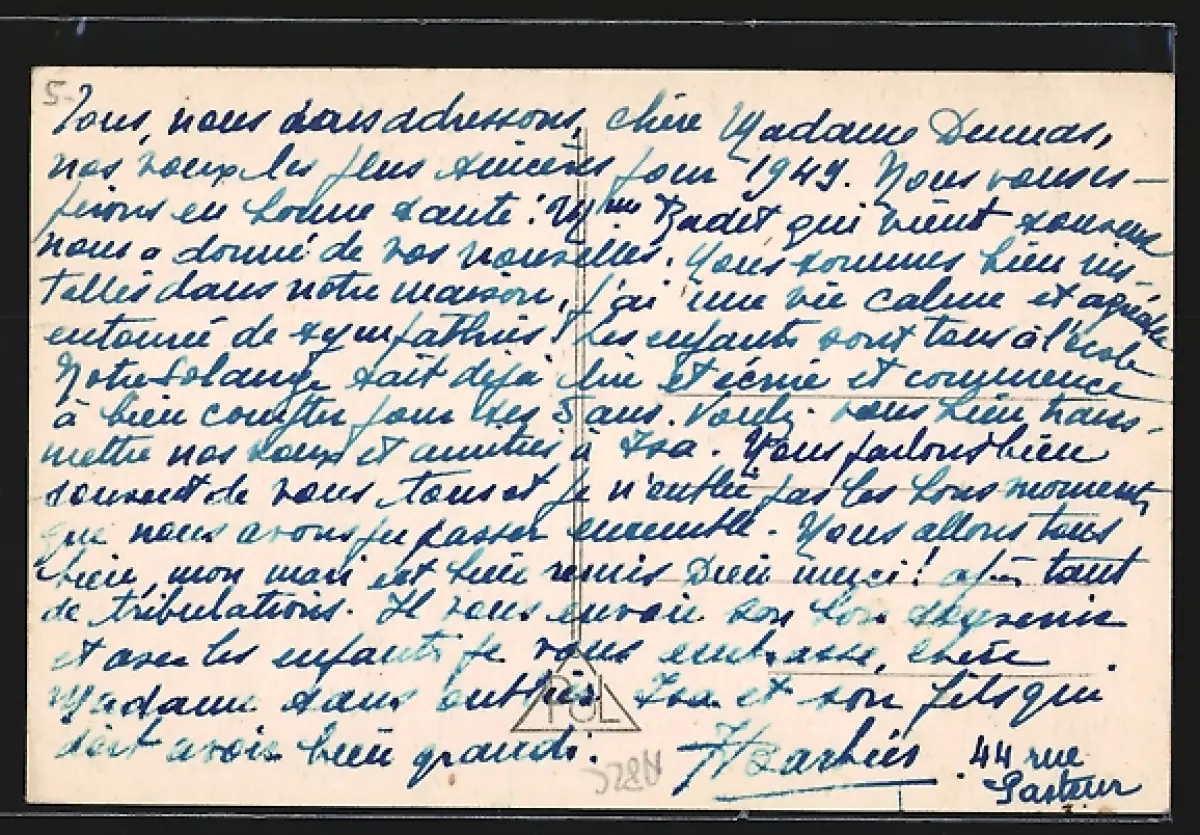 5-
Tous, nous vous adressons, chère Madame Dumas,
nos voeux les plus sincères pour 1949. Nous vous es-
pérons en bonne santé! Mme Badet qui vient souvent
nous a donné de vos nouvelles. Nous sommes bien ins-
tallés dans notre maison, j'ai une vie calme et agréable
entourée de sympathies! Les enfants sont tous à l'école
Notre Solange sait déjà lire et écrire et commence
à bien compter pour ses 5 ans. Voulez-vous bien trans-
mettre nos voeux et amitiés à Isa. Nous parlons bien
souvent de vous tous et je n'oublie pas les bons moments
que nous avons pu passer ensemble. Nous allons tous
bien, mon mari est bien remis Dieu merci! après tant
de tribulations. Il vous envoie son bon souvenir
et avec les enfants je vous embrasse, chère
Madame sans oublier Isa et son fils qui
doit avoir bien grandi. Barbiés 44 rue
Pasteur
POL